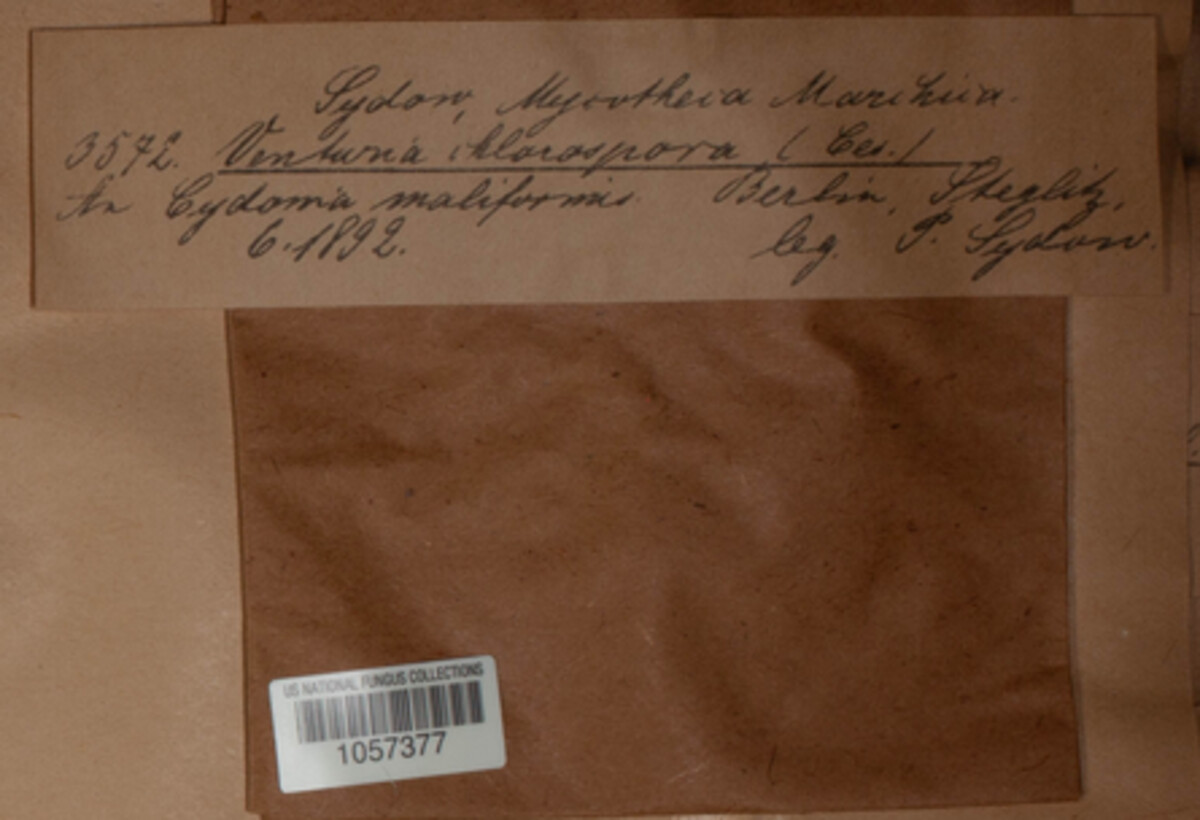 Sydow, Mycotheca Marchica.
3572. Venturia chlorospora (Ces.)
An Cydonia maliformis. Berlin, Steglitz,
6.1892. leg. P. Sydow.
US NATIONAL FUNGUS COLLECTIONS
1057377